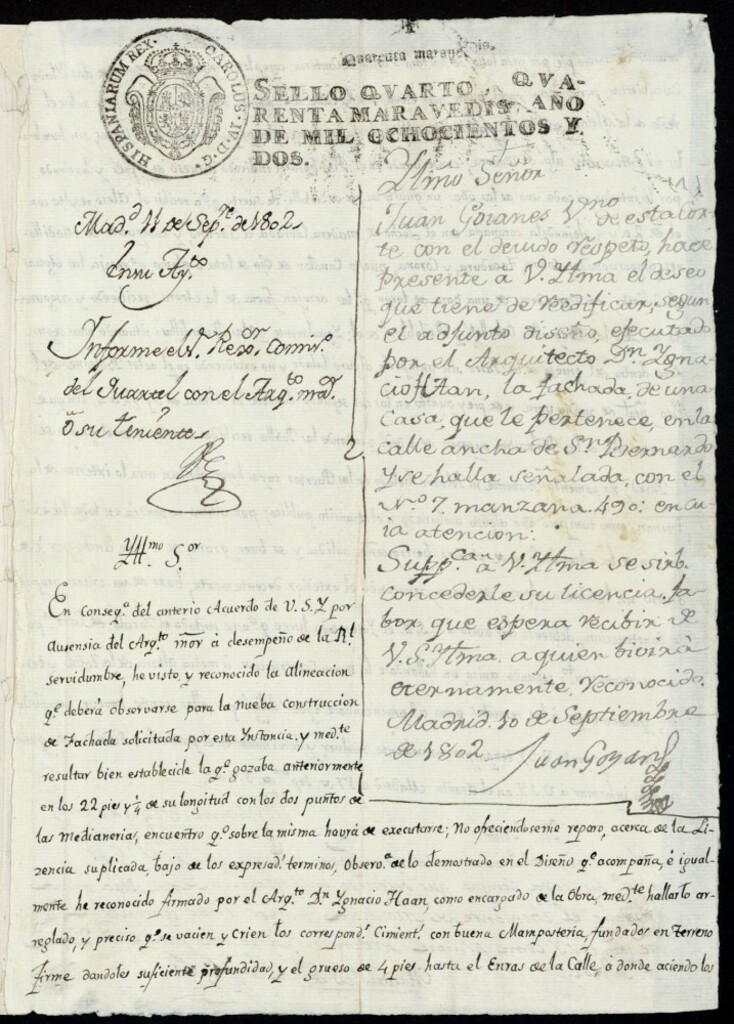 HISPANIARUM REX. CAROLUS. IV. D. G.
Quarenta maravedis.
SELLO QVARTO, QVA-
RENTA MARAVEDIS, AÑO
DE MIL OCHOCIENTOS Y
DOS.
Mad.d 11 de Sep.re de 1802
En su Ay.to
Informe el S.r Rex.or Comis.o
del Quartel con el Arq.to m.or
ò su teniente
Yltmo Señor
Juan Goianes V.no de esta Cor-
te con el devido respeto, hace
presente à V. Yltma el deseo
que tiene de reedificar, segun
el adjunto diseño, efecutado
por el Arquitecto Dn. Ygna-
cio Han, la fachada, de una
Casa, que le pertenece, en la
calle ancha de Sn. Bernardo
y se halla señalada, con el
N.o 7. manzana. 490: en cu
ia atencion:
Supp.ca à V. Yltma se sirb.
concederle su licencia, fa
bor, que espera recibir de
V. S. Yltma. a quien bivirà
eternamente, reconocido.
Madrid. 10 de Septiembre
de 1802
Juan Goyanes
Yll.mo S.or
En conseq.a del anterio Acuerdo de V. S. Y por
ausensia del Arq.to mor à desempeño de la Rl.
servidumbre, he visto, y reconocido la Alineacion
q.e deberá observarse para la Nueba construccion
de Fachada solicitada por esta Ynstancia, y med.te
resultar bien establecida la q.e gozaba anteriormente
en los 22 pies y 1/4 de su longitud con los dos puntos de
las Medianerias, encuentro q.e sobre la misma havrá de executarse; No ofreciendoseme reparo, acerca de la Li-
zencia suplicada, bajo de los expresad.s terminos, Observ.a de lo demostrado en el Diseño q.e acompaña, é igual-
mente he reconocido firmado por el Arq.to Dn Ygnacio Haan, como encargado de la Obra, med.te hallarlo ar-
reglado, y preciso q.e se vacien y Crien los correspond.s Ciment.s con buena Mamposteria, fundados en terreno
firme dandoles suficiente profundidad, y el grueso de 4 pies hasta el Enras de la Calle, à donde aciendo los